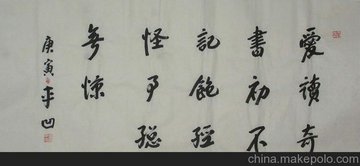 愛讀奇
書初不
記飽經
怪事總
無驚
庚寅平凹
china.makepolo.com